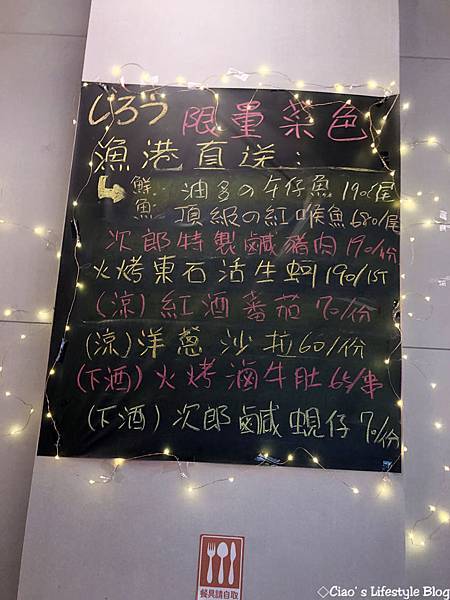 じろう 限量菜色
漁港直送：
鮮魚 油多の午仔魚 190/尾
頂級の紅喉魚 680/尾
次郎特製鹹豬肉 190/份
火烤東石活生蚵 190/1斤
(涼) 紅酒番茄 70/份
(涼) 洋蔥沙拉 60/份
(下酒) 火烤滷牛肚 65/串
(下酒) 次郎鹹蜆仔 70/份
餐具請自取
◇Ciao's Lifestyle Blog